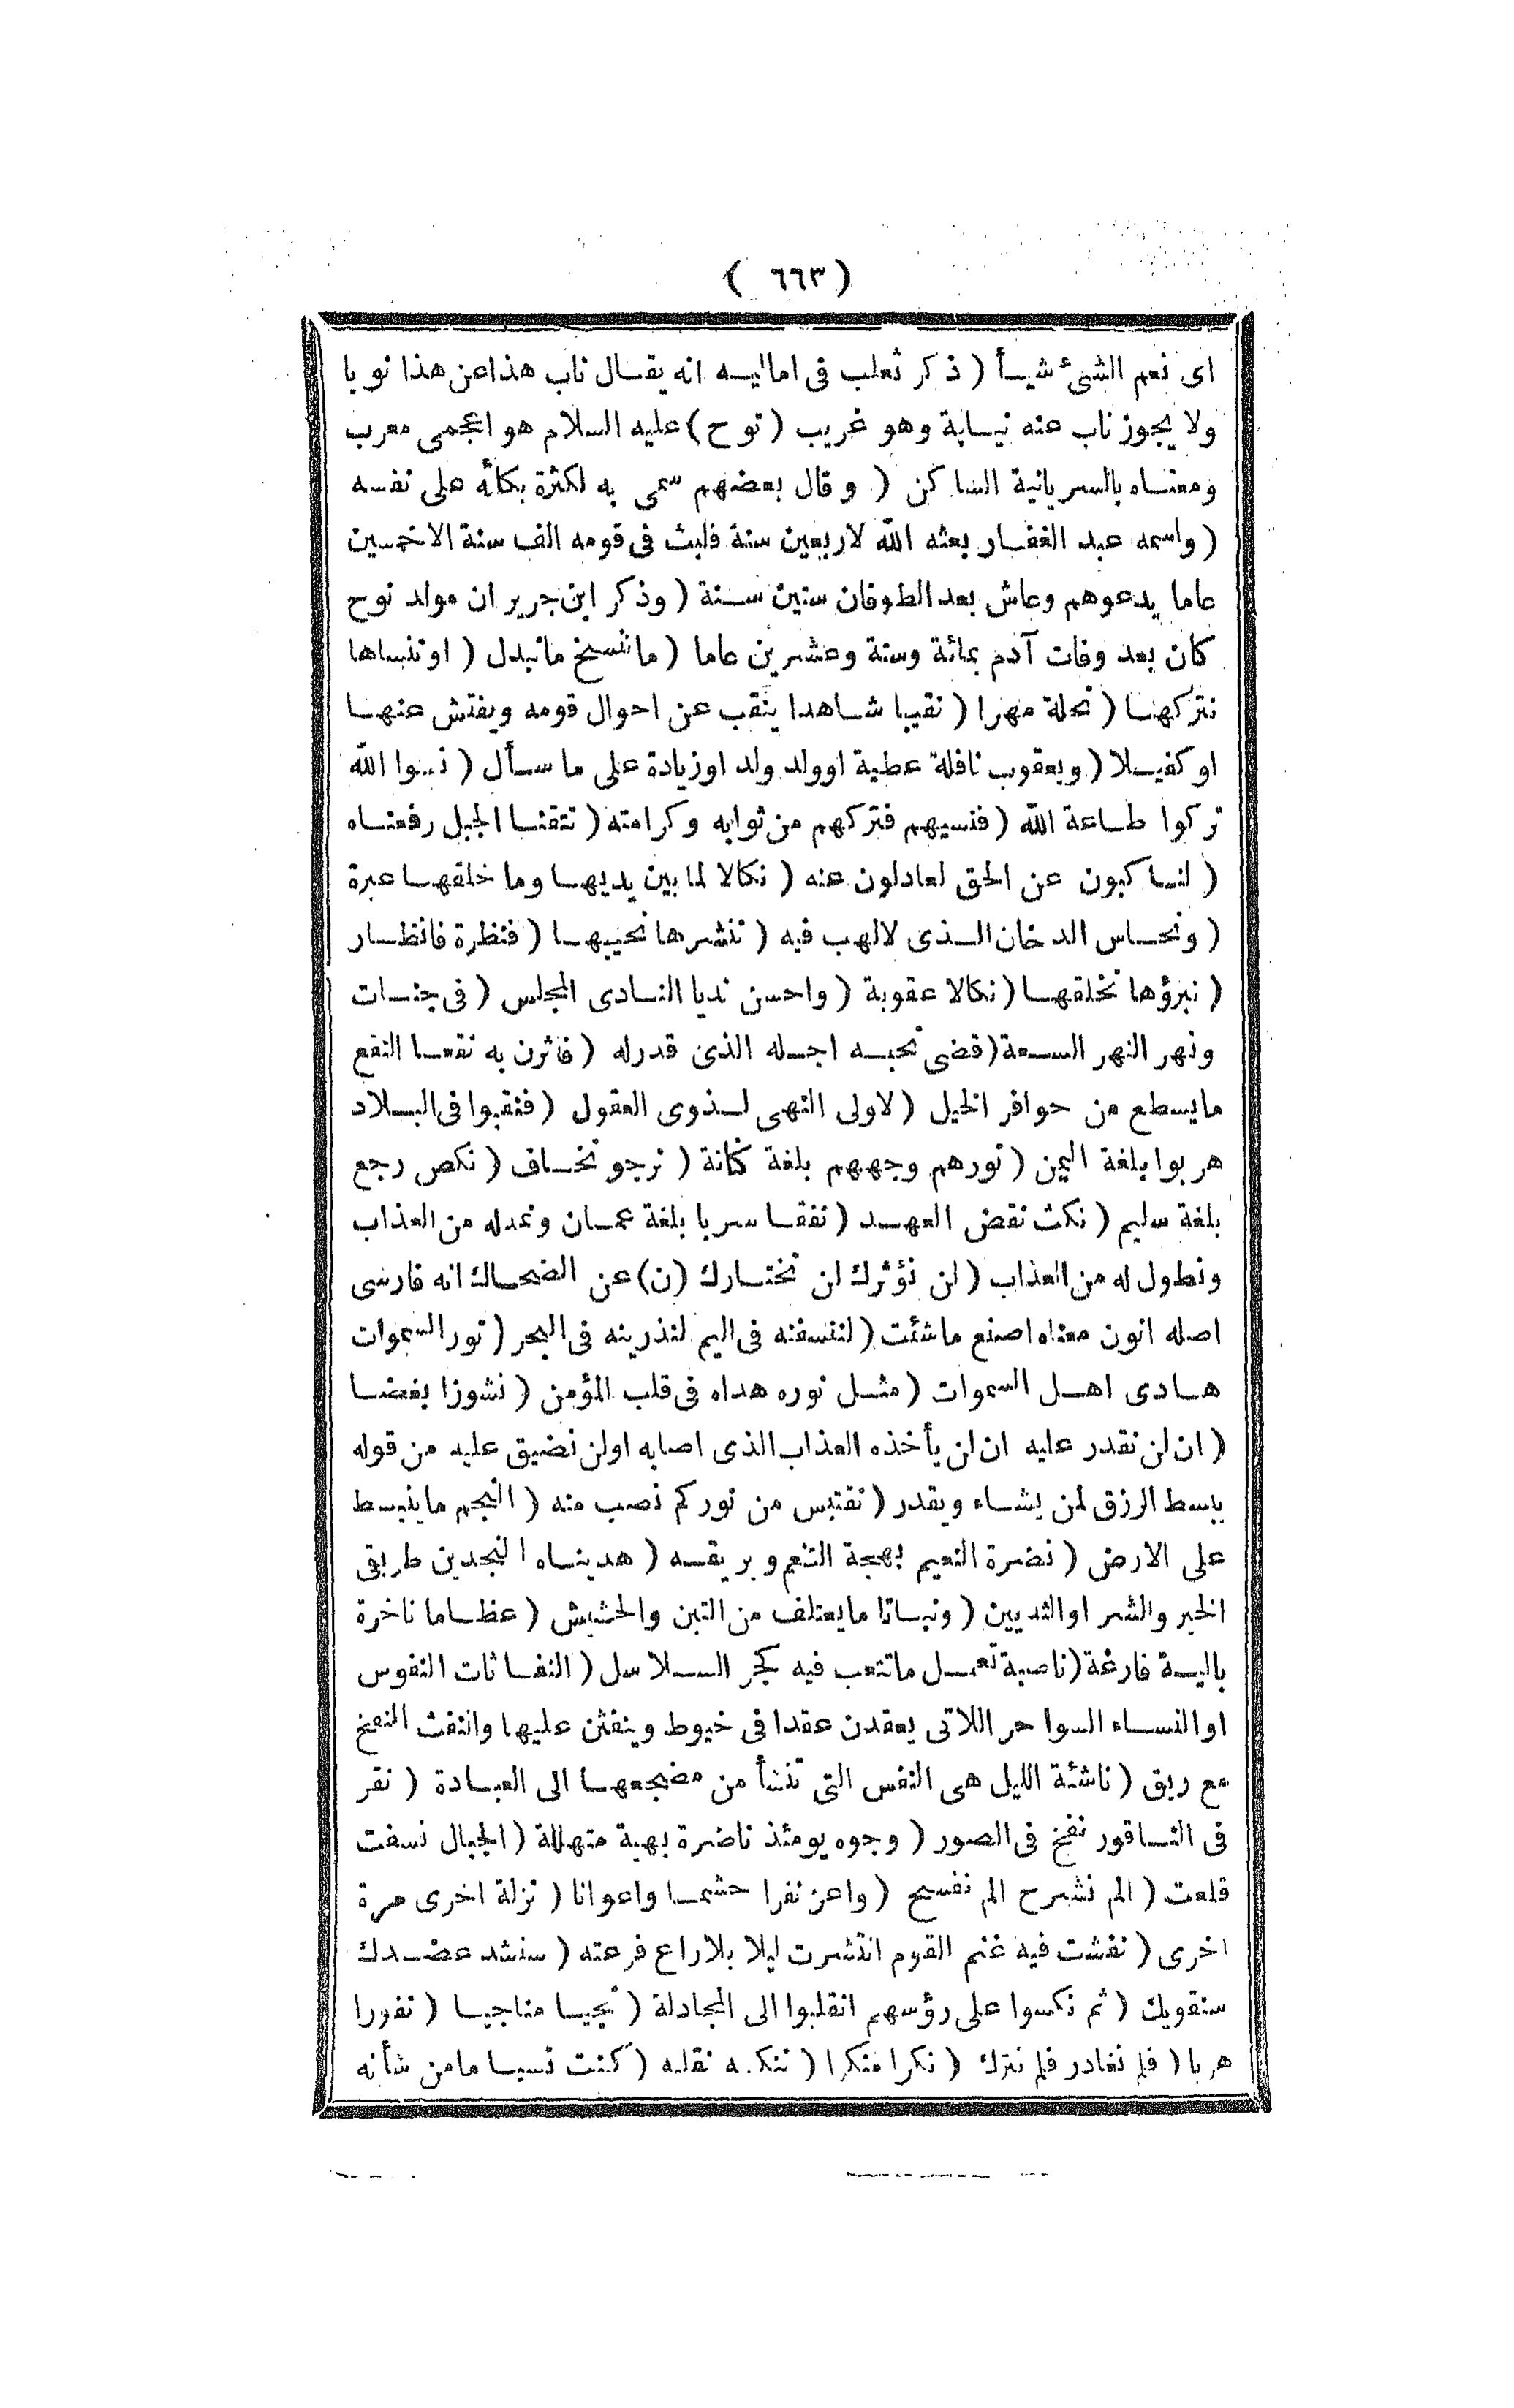 ( ٦٦٣ )
اى نعم الشئ شيأ ( ذكر ثعلب فى اماليه انه يقال ناب هذا عن هذا نوبا
ولا يجوز ناب عنه نيابة وهو غريب ( نوح ) عليه السلام هو اعجمى معرب
ومعناه بالسريانية الساكن ( وقال بعضهم سمى به لكثرة بكائه على نفسه
( واسمه عبد الغفار بعثه الله لاربعين سنة فلبث فى قومه الف سنة الا خمسين
عاما يدعوهم وعاش بعد الطوفان ستين سنة ( وذكر ابن جرير ان مولد نوح
كان بعد وفات آدم بمائة وستة وعشرين عاما ( ما ننسخ ما نبدل ( او ننساها
نتركها ( نحلة مهرا ( نقيبا شاهدا ينقب عن احوال قومه ويفتش عنها
او كفيلا ( ويعقوب نافلة عطية او ولد ولد او زيادة على ما سأل ( نسوا الله
تركوا طاعة الله ( فنسيهم فتركهم من ثوابه وكرامته ( نتقنا الجبل رفعناه
( لناكبون عن الحق لعادلون عنه ( نكالا لما بين يديها وما خلفها عبرة
( ونحاس الدخان الذى لا لهب فيه ( ننشرها نحييها ( فنظرة فانظار
( نبرؤها نخلقها ( نكالا عقوبة ( واحسن نديا النادى المجلس ( فى جنات
ونهر النهر السعة ( قضى نحبه اجله الذى قدر له ( فاثرن به نقعا النقع
ما يسطع من حوافر الخيل ( لاولى النهى لذوى العقول ( فنقبوا فى البلاد
هربوا بلغة اليمن ( نورهم وجههم بلغة كنانة ( نرجو نخاف ( نكص رجع
بلغة سليم ( نكث نقض العهد ( نفقا سربا بلغة عمان ونمد له من العذاب
ونطول له من العذاب ( لن نؤثرك لن نختارك ( ن ) عن الضحاك انه فارسى
اصله انون معناه اصنع ما شئت ( لننسفنه فى اليم لنذرينه فى البحر ( نور السموات
هادى اهل السموات ( مثل نوره هداه فى قلب المؤمن ( نشوزا بغضا
( ان لن نقدر عليه ان لن يأخذه العذاب الذى اصابه او لن نضيق عليه من قوله
يبسط الرزق لمن يشاء ويقدر ( نقتبس من نوركم نصب منه ( النجم ما ينبسط
على الارض ( نضرة النعيم بهجة التنعم وبريقه ( هديناه النجدين طريقى
الخير والشر او الثديين ( ونباتا ما يعتلف من التبن والحشيش ( عظاما ناخرة
بالية فارغة ( ناصبة تعمل ما تتعب فيه كجر السلاسل ( النفاثات النفوس
او النساء السواحر اللاتى يعقدن عقدا فى خيوط وينفثن عليها والنفث النفخ
مع ريق ( ناشئة الليل هى النفس التى تنشأ من مضجعها الى العبادة ( نقر
فى الناقور نفخ فى الصور ( وجوه يومئذ ناضرة بهية متهللة ( الجبال نسفت
قلعت ( الم نشرح الم نفسح ( واعز نفرا حشما واعوانا ( نزلة اخرى مرة
اخرى ( نفشت فيه غنم القوم انتشرت ليلا بلا راع فرعته ( سنشد عضدك
سنقويك ( ثم نكسوا على رؤسهم انقلبوا الى المجادلة ( نجيا مناجيا ( نفورا
هربا ( فلم نغادر فلم نترك ( نكرا منكرا ( ننكسه نقلبه ( كنت نسيا ما من شأنه